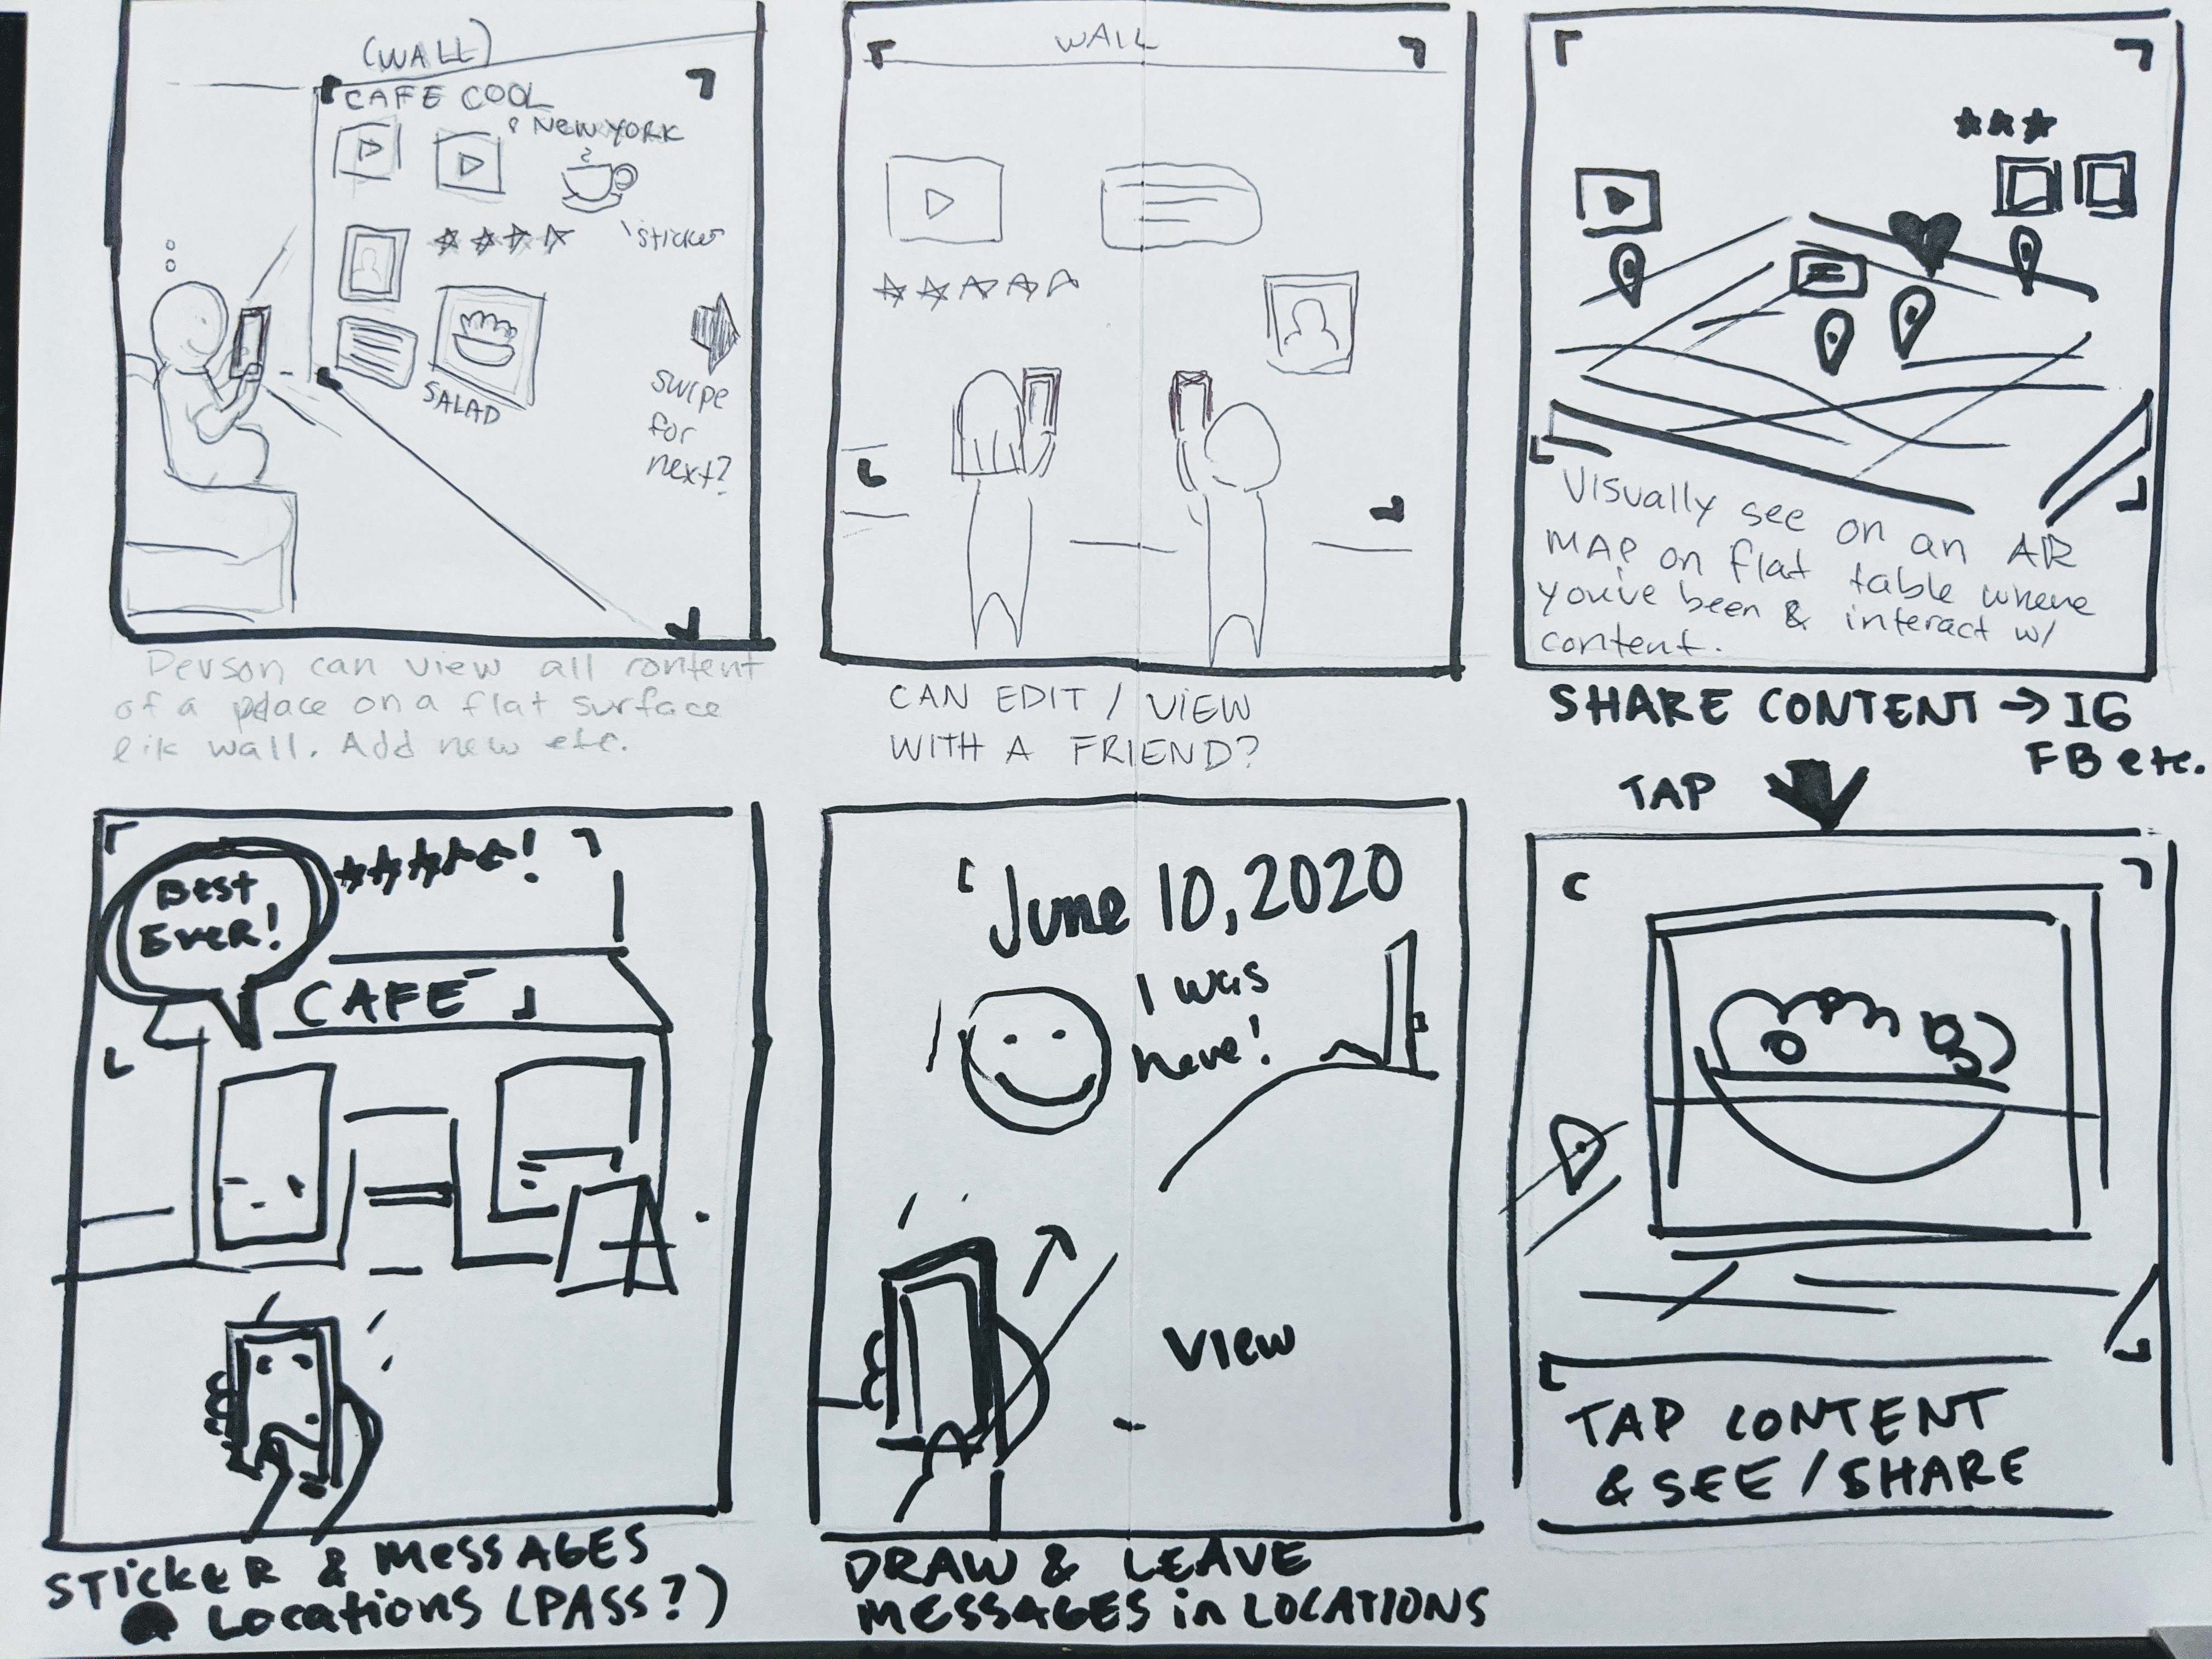 (WALL)
CAFE COOL
NEW YORK
sticker
SALAD
swipe
for
next?
Person can view all content
of a place on a flat surface
lik wall. Add new etc.
WALL
CAN EDIT / VIEW
WITH A FRIEND?
Visually see on an AR
MAP on flat table where
you've been & interact w/
content.
SHARE CONTENT → IG
FB etc.
TAP
BEST
EVER!
!
CAFE
STICKER & MESSAGES
@ LOCATIONS (PASS?)
June 10, 2020
I was
here!
VIEW
DRAW & LEAVE
MESSAGES in LOCATIONS
TAP CONTENT
& SEE / SHARE